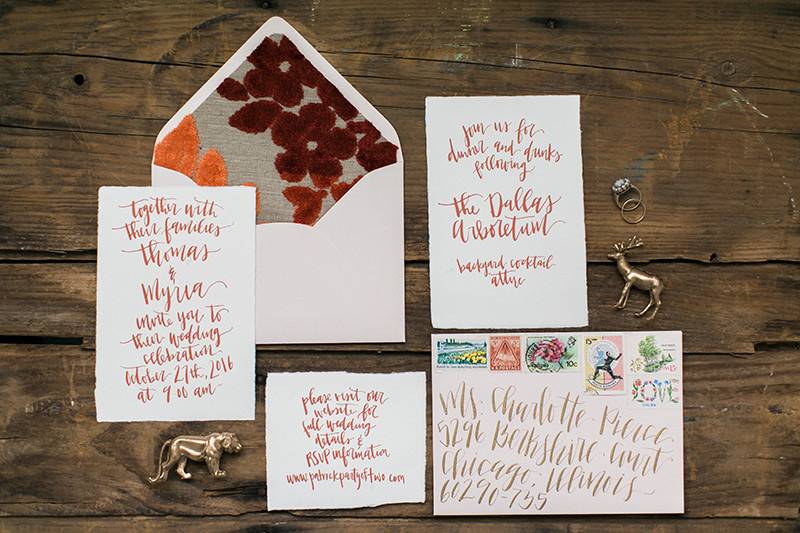 together with
their families
Thomas
&
Myria
invite you to
their wedding
celebration
October 27th, 2016
at 9:00 am
join us for
dinner and drinks
following
the Dallas
arboretum
backyard cocktail
attire
please visit our
website for
full wedding
details &
RSVP information
www.patrickpartyoftwo.com
10c
15
LOVE
Ms. Charlotte Pierce
5296 Berkshire Court
Chicago, Illinois
60290-735